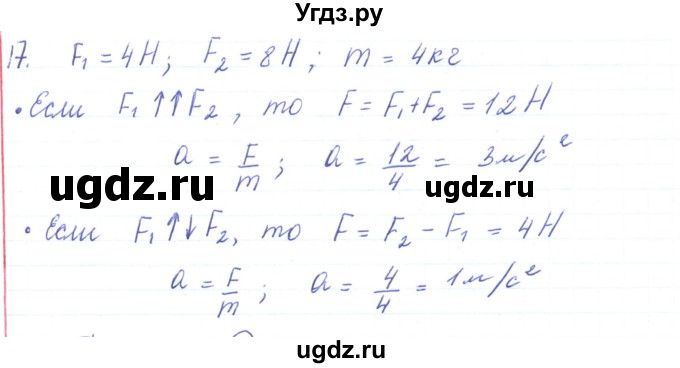 Угдз.ру
17. F₁ = 4Н; F₂ = 8Н; m = 4кг
• Если F₁ ↑↑ F₂, то F = F₁ + F₂ = 12 Н
a = F/m; a = 12/4 = 3м/с²
ugdz.ru ugdz.ru
• Если F₁ ↑↓ F₂, то F = F₂ - F₁ = 4Н
a = F/m; a = 4/4 = 1м/с²
ugdz.ru